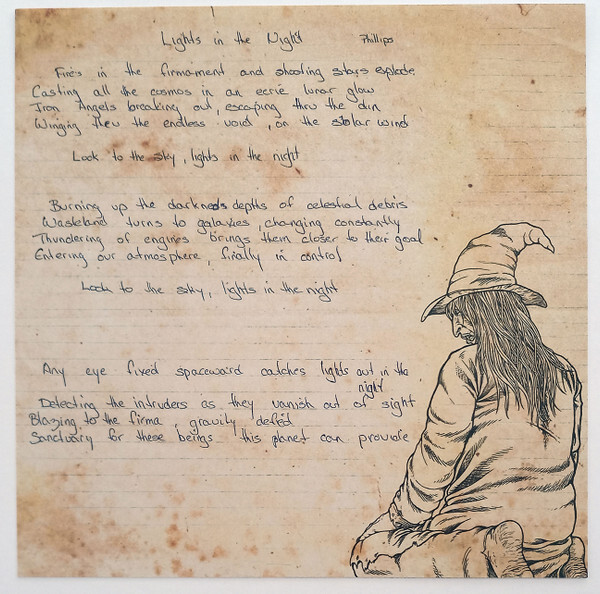 Lights in the Night Phillips
Fires in the firmament and shooting stars explode
Casting all the cosmos in an eerie lunar glow
Iron Angels breaking out, escaping thru the din
Winging thru the endless void, on the stolar wind
Look to the sky, lights in the night
Burning up the darkness depths of celestial debris
Wasteland turns to galaxies, changing constantly
Thundering of engines brings them closer to their goal
Entering our atmosphere, finally in control
Look to the sky, lights in the night
Any eye fixed spaceward catches lights out in the
night
Detecting the intruders as they vanish out of sight
Blazing to the firma gravity defied
Sanctuary for these beings this planet can provide